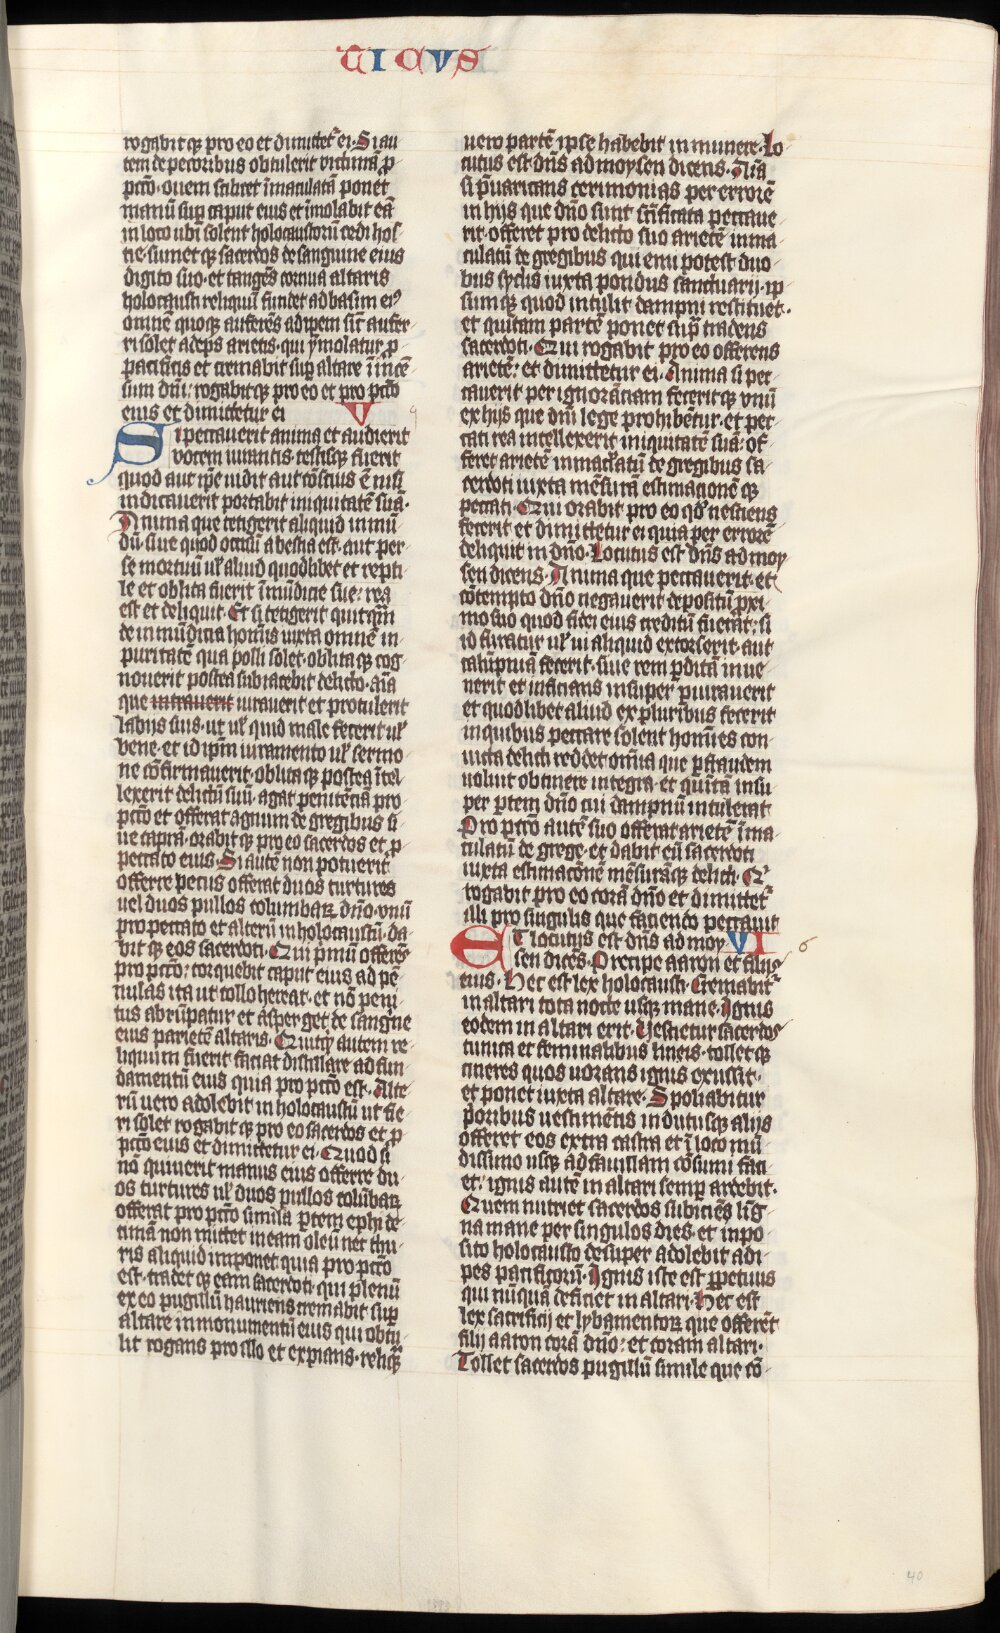 TICVS
rogabit qꝫ pro eo et dimittet᷑ ei. Si au
tem de pecoribus obtulerit victimā ꝓ
pccō. ouem scilicet īmaculatā ponet
manū suꝑ caput eius et īmolabit eā
in loco ubi solent holocaustorū cedi hos
tie. sumet qꝫ sacerdos de sanguine eius
digito suo. et tangēs cornua altaris
holocausti reliquū fundet ad basim eiꝰ
omnē quoqꝫ auferēs adipem sic̄ aufer
ri solet adeps arietis. qui ymolatur ꝓ
pacificis et cremabit suꝑ altare ī incē
sum dn̄i. rogabit qꝫ pro eo et pro pccō
eius et dimittetur ei V
Si peccauerit anima et audierit
vocem iurantis. testisqꝫ fuerit
quod aut ip̄e uidit aut cōscius ē nisi
indicauerit portabit iniquitatē suā.
Anima que tetigerit aliquid inmū
dū. siue quod occisū a bestia est. aut per
se mortuū ul̓ aliud quodlibet et repti
le et oblita fuerit īmūdicie sue. rea
est et deliquit. Et si tetigerit quicq̄m
de inmūdicia homīs iuxta omnē in
puritatē qua pollui solet. oblita qꝫ cog
nouerit postea subiacebit delicto. aīa
que intrauerit iurauerit et protulerit
labijs suis. ut ul̓ quid male fecerit ul̓
bene. et id ip̄m iuramento ul̓ sermo
ne cōfirmauerit. oblita qꝫ postea ītel
lexerit delictū suū. agat penitēciā pro
pccō et offerat agnum de gregibus si
ue capra. orabit qꝫ pro eo sacerdos et ꝓ
peccato eius. Si autē non potuerit
offerre pecus offerat duos turtures
uel duos pullos columbaꝝ dn̄o. vnū
pro peccato et alterū in holocaustū. da
bit qꝫ eos sacerdoti. Qui p̄mū offerēs
pro pccō. torquebit caput eius ad pē
nulas ita ut collo hereat. et nō peni
tus abrūpatur et asperget de sangīne
eius parietē altaris. Quitqꝫ autem re
liquum fuerit faciat distillare ad fun
damentū eius quia pro pccō est. Alte
rū uero adolebit in holocaustū ut fie
ri solet rogabit qꝫ pro eo sacerdos et ꝓ
pccō eius et dimittetur ei. Quod si
nō quiuerit manus eius offerre du
os turtures ul̓ duos pullos colūbaꝝ
offerat pro pccō simila ꝑtem ephi de
cimā non mittet in eam oleū nec thu
ris aliquid imponet quia pro pccō
est. tradet qꝫ eam sacerdoti. qui plenū
ex eo pugillū hauriens cremabit suꝑ
altare in monumentū eius qui obtu
lit rogans pro illo et expians. reliq̄m
uero partē ipse habebit in munere. Lo
cutus est dn̄s ad moysen dicens. Aīa
si p̄uaricans cerimonias per errorē
in hijs que dn̄o sunt sc̄ificata peccaue
rit. offeret pro delicto suo arietē inma
culatū de gregibus qui emi potest duo
bus syclis iuxta pondus sanctuarij. ip
sum qꝫ quod intulit dampni restituet.
et quitam partē ponet sup̄ tradens
sacerdoti. Qui rogabit pro eo offerens
arietē. et dimittetur ei. Anima si pec
cauerit per ignorāciam fecerit qꝫ vnū
ex hijs que dn̄i lege prohibētur. et pec
cati rea intellexerit iniquitatē suā. of
feret arietē inmaclatū de gregibus sa
cerdoti iuxta mēsurā estimacionē qꝫ
peccati. Qui orabit pro eo qd̓ nesciens
fecerit et dimittetur ei quia per errorē
deliquit in dn̄o. Locutus est dn̄s ad moy
sen dicens. Anima que peccauerit. et
cōtempto dn̄o negauerit depositū ꝓxi
mo suo quod fidei eius creditū fuerat. si
id furatur ul̓ ui aliquid extorserit. aut
calūpniā fecerit. siue rem ꝑditā inue
nerit et inficians insuper ꝑiurauerit
et quodlibet aliud ex pluribus fecerit
in quibus peccare solent homīes con
uicta delicti reddet om̄ia que ꝑ fraudem
uoluit obtinere integra. et quītā insu
per ꝑtem dn̄o cui dampnū intulerat
Pro pccō autē suo offerat arietē īma
culatū de grege. et dabit eū sacerdoti
iuxta estimacōnē mēsurāqꝫ delicti. Qͥ
rogabit pro eo corā dn̄o et dimittet᷑
illi pro singulis que faciendo peccauit
Et locutus est dn̄s ad moy VI 6
sen dicēs. Precipe aaron et filijs
eius. Hec est lex holocausti. Cremabit᷑
in altari tota nocte usqꝫ mane. Ignis
eodem in altari erit. Uestietur sacerdos
tunica et feminalibus lineis. tollet qꝫ
cineres quos uorans ignis exussit.
et ponet iuxta altare. Spoliabitur
p̄oribus uestimētis indutusqꝫ alijs
offeret eos extra castra et ī loco mū
dissimo usqꝫ ad fauillam cōsumi faci
et. ignis autē in altari semꝑ ardebit.
Quem nutriet sacerdos subiciēs lig
na mane per singulos dies. et inpo
sito holocausto desuper adolebit adi
pes pacificorū. Ignis iste est ꝑpetuus
qui nūquā deficiet in altari. Hec est
lex sacrificij et lybamentoꝝ que offerēt
filij aaron corā dn̄o. et coram altari.
Tollet sacerdos pugillū simile que cō
40